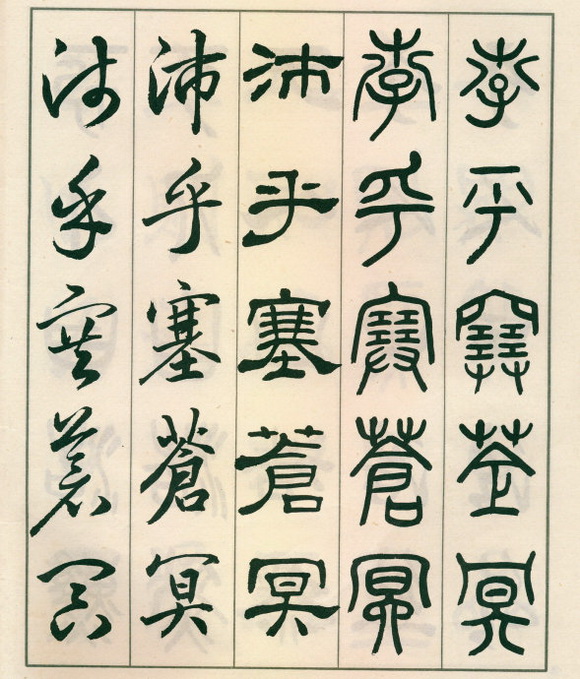 沛乎塞蒼冥
沛乎塞蒼冥
沛乎塞蒼冥
沛乎塞蒼冥
沛乎塞蒼冥